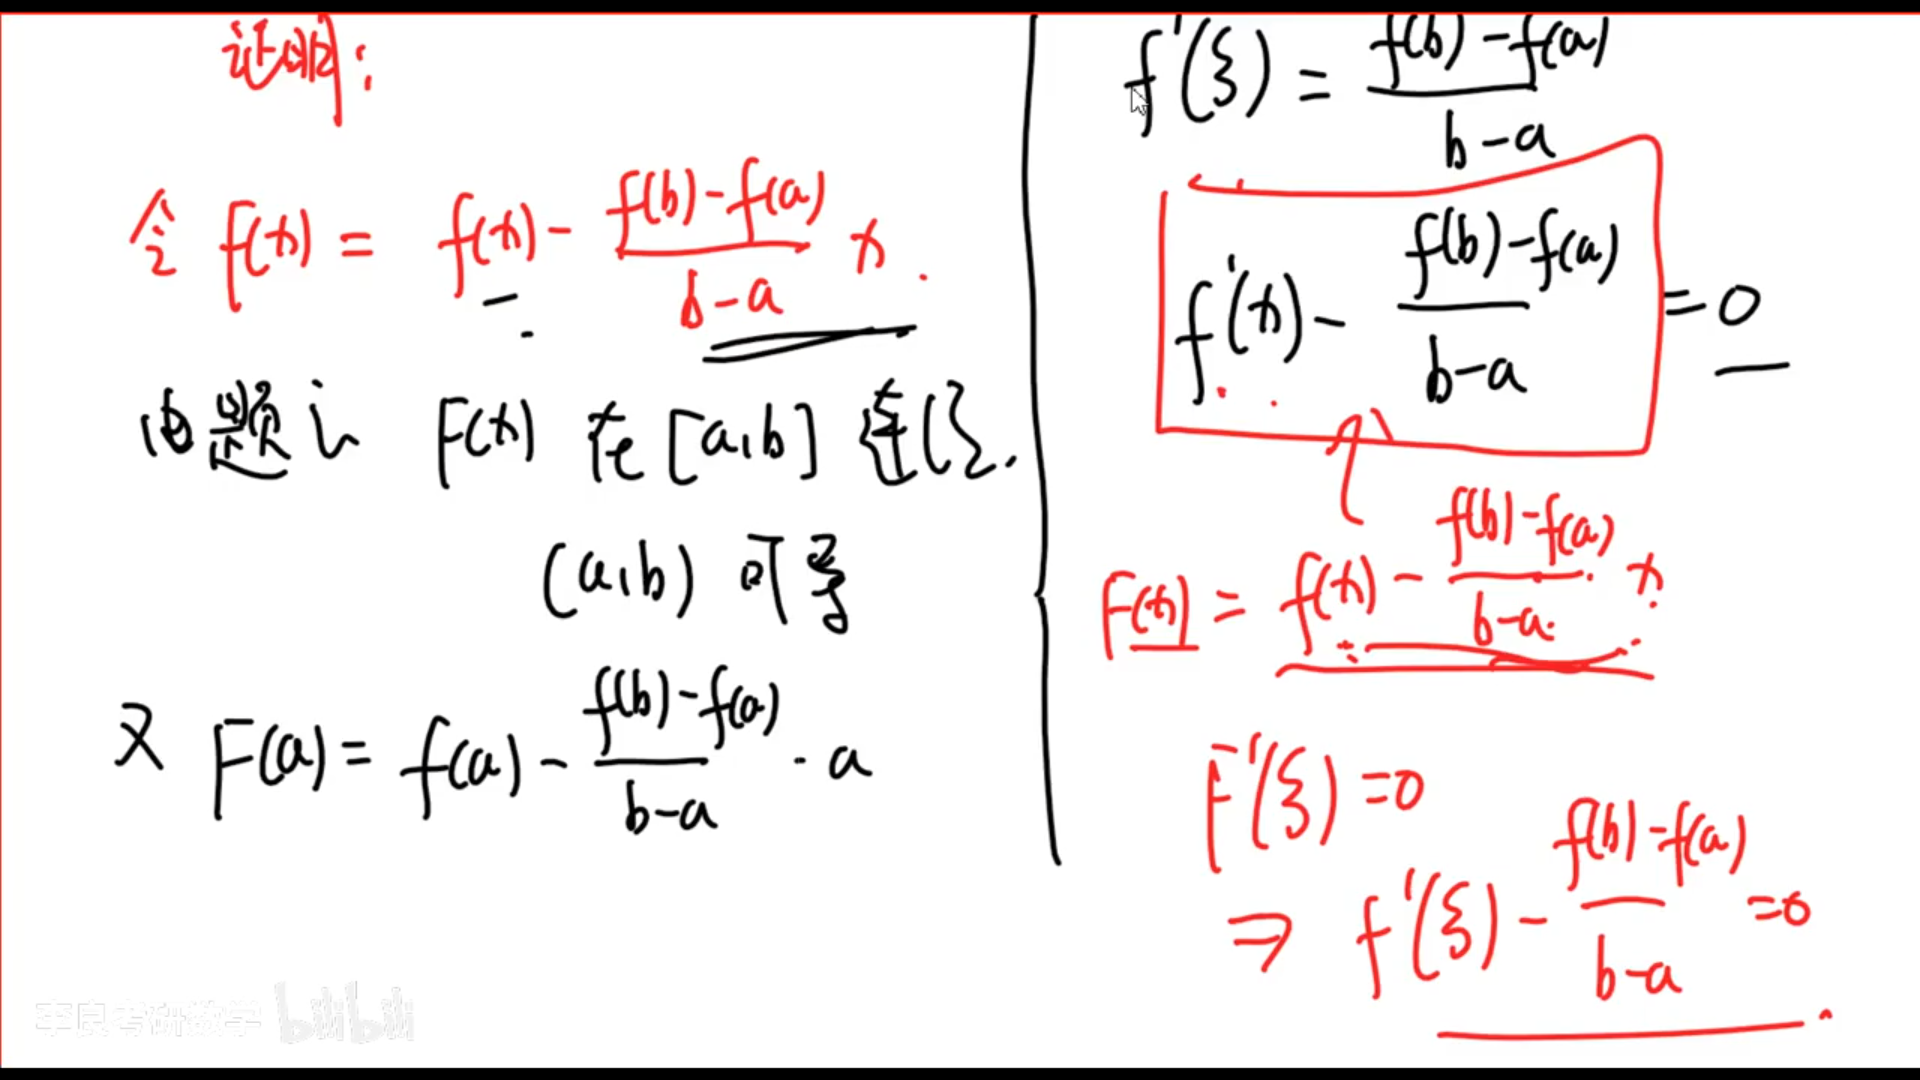 证明:
令 F(x) = f(x) - \frac{f(b)-f(a)}{b-a} x.
由题设 F(x) 在 [a,b] 连续.
(a,b) 可导
又 F(a) = f(a) - \frac{f(b)-f(a)}{b-a} · a
f'(ξ) = \frac{f(b)-f(a)}{b-a}
f'(x) - \frac{f(b)-f(a)}{b-a} = 0
F(x) = f(x) - \frac{f(b)-f(a)}{b-a} x
F'(ξ) = 0
⇒ f'(ξ) - \frac{f(b)-f(a)}{b-a} = 0
李良考研数学 bilibili